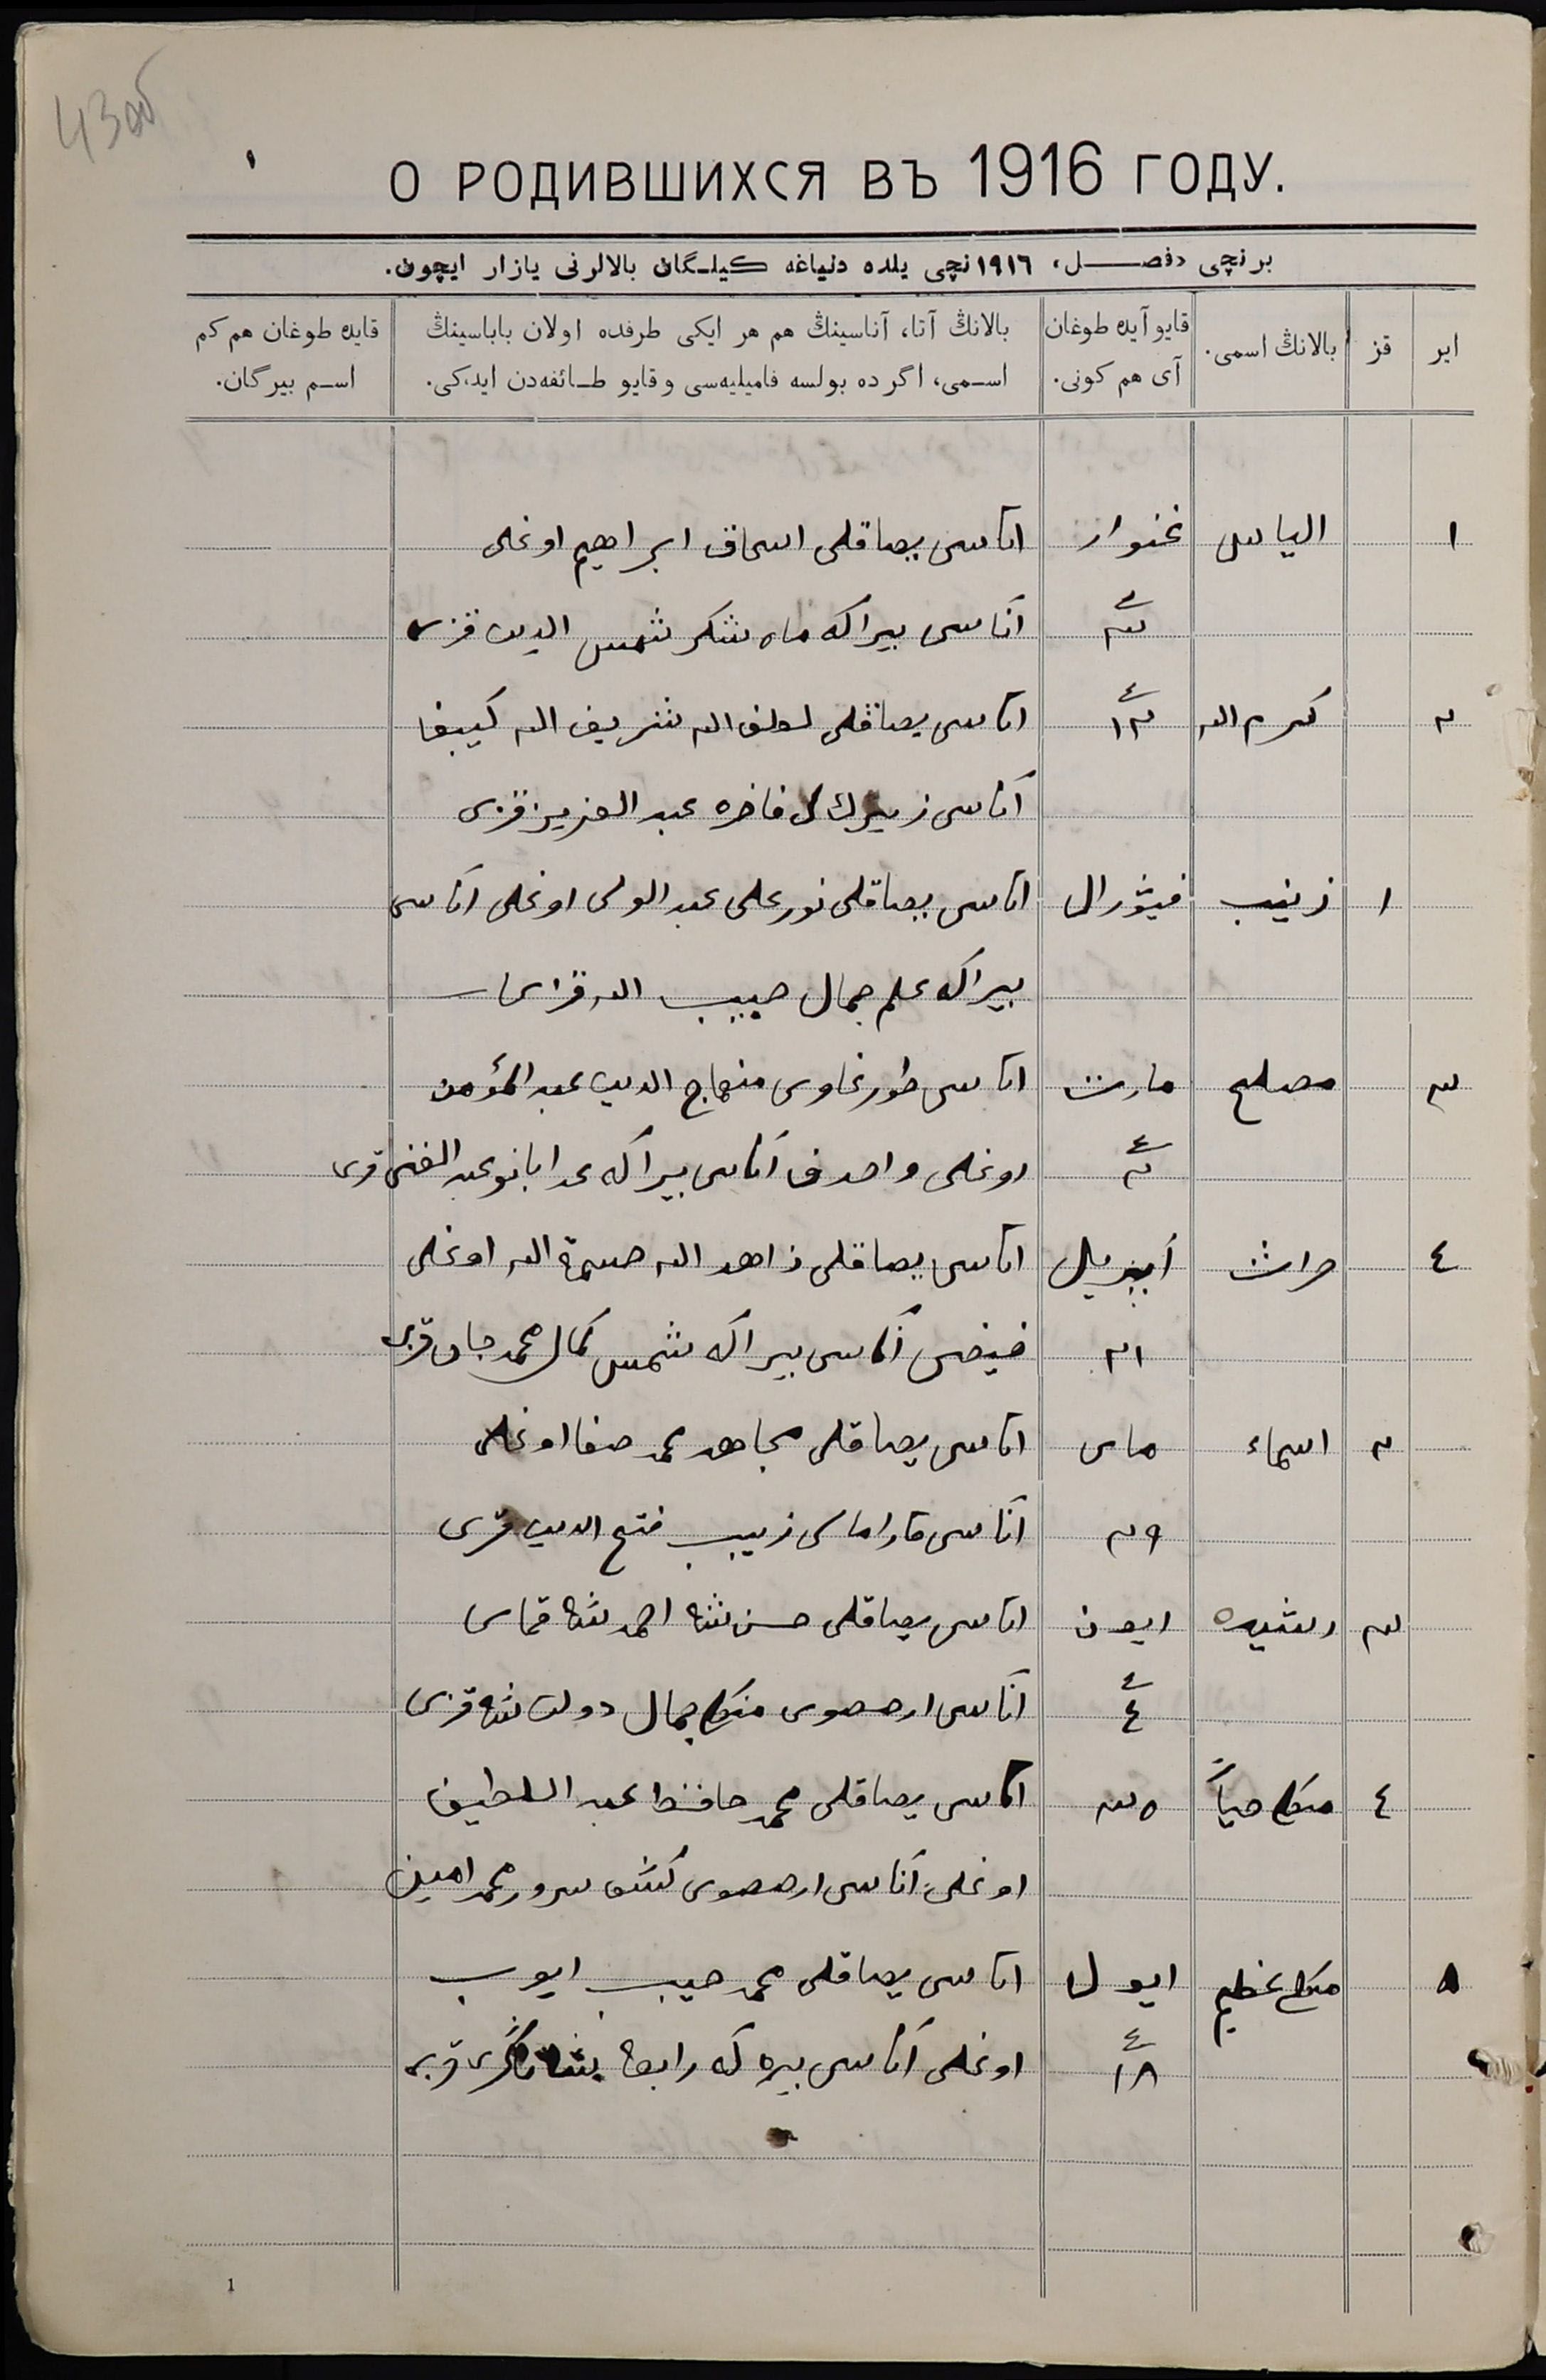 43об
О РОДИВШИХСЯ ВЪ 1916 ГОДУ.
برنچی «فصل» ١٩١٦ نچی یلده دنیاغه کیلگان بالالرنی یازار ایچون.
ایر
قز
بالانڭ اسمی.
قایو آیده طوغان
آی هم کونی.
بالانڭ آتا، آناسینڭ هم هر ایکی طرفده اولان باباسینڭ
اسمی، اگر ده بولسه فامیلیه‌سی و قایو طائفه‌دن ایدکی.
قایده طوغان هم کم
اسم بیرگان.
١ الیاس غنوار اتاسی یصاقلی اسحاق ابراهیم اوغلی
٣ اناسی بیراکه ماه شکر شمس الدین قزی
٢ کرم الله ١٣ اتاسی یصاقلی لطف الله شریف الله
اناسی فاخره عبد العزیز قزی
١ زینب فیورال اتاسی یصاقلی نور علی عبد الولی اوغلی اناسی
بیراکه علم جمال حبیب الله قزی
٣ مصلح مارت اتاسی منهاج الدین عبد المؤمن
٢ اوغلی واحدف اناسی بیراکه بانو عبد الغنی قزی
٤ حراث اپریل اتاسی یصاقلی زاهد الله اوغلی
٢١ اناسی بیراکه شمس کمال محمد جان قزی
٢ اسماء مای اتاسی یصاقلی مجاهد محمد صفا اوغلی
٢٩ اناسی زینب فتح الدین قزی
٣ رشیده ایون اتاسی یصاقلی حسن شاه احمد شاه
٤ اناسی جمال دولت شاه قزی
٤ اتاسی یصاقلی محمد حافظ عبد اللطیف
اوغلی اناسی سرور محمد امین
٥ ایول اتاسی یصاقلی محمد حبیب ایوب
١٨ اوغلی اناسی بیره که رابعه قزی
1